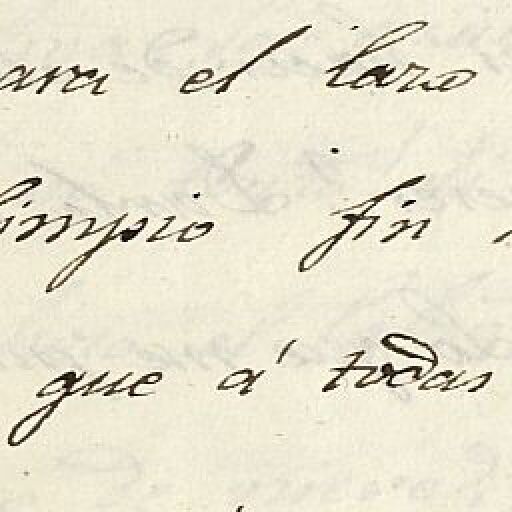 ara el lazo
limpio fin
que á todas